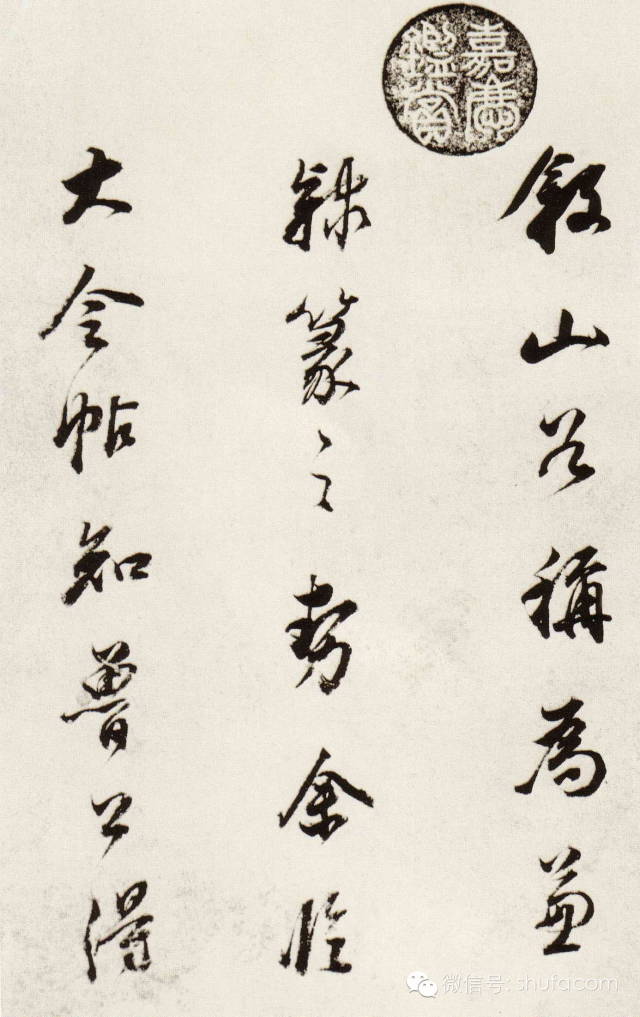 嘉慶鑑賞
敘山谷稱為兼
隸篆之勢余臨
大令帖知魯公得
微信号: shufacom